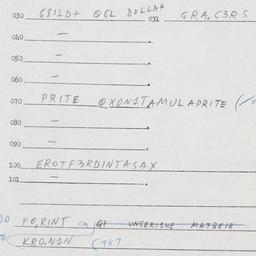 030 G8ILD+ QGL DOLLAR 031 GRA,C3RS
040 —
050 —
060 —
070 PRITE QXONSTAMULAPRITE
080 —
090 —
100 EROTF3RDINTASAX
101 —
FO,RINT QI UNGERISHE MATBEIE
KRO,NSN (987